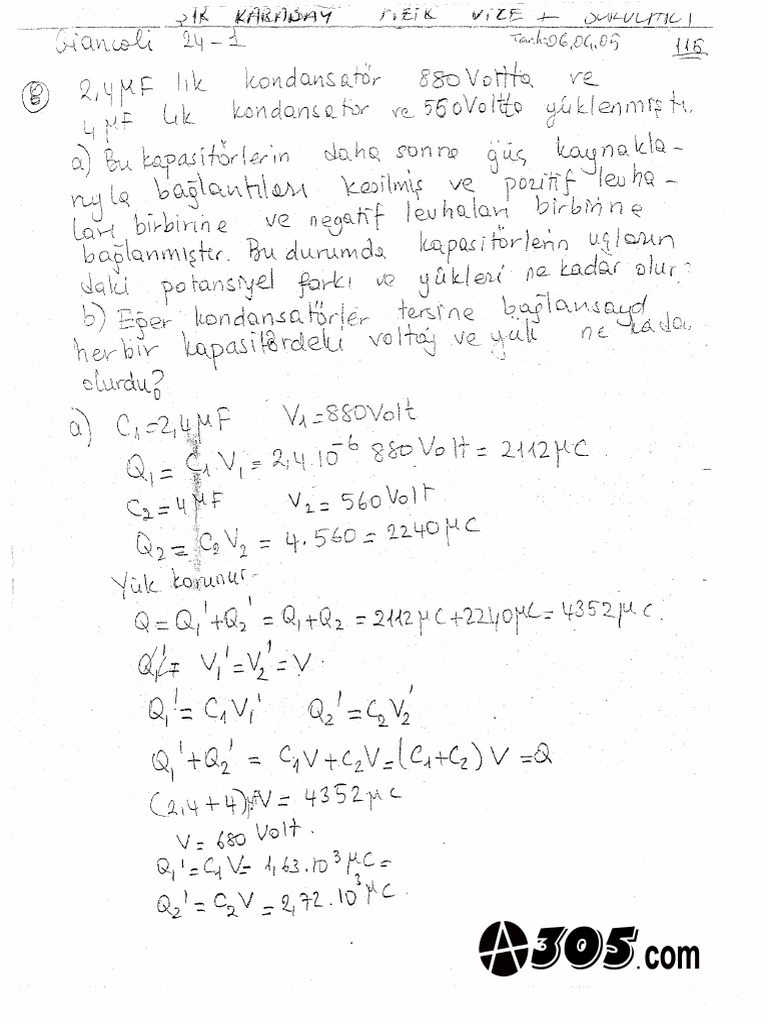 IK KARADAY FİZİK VİZE +
Giancoli 24-1 Tarih:06.04.05 115
8 2,4μF lık kondansatör 880 Voltta ve
4 μF lık kondansatör ve 560Voltta yüklenmiştir.
a) Bu kapasitörlerin daha sonra güç kaynakla-
rıyla bağlantıları kesilmiş ve pozitif levha-
ları birbirine ve negatif levhaları birbirine
bağlanmıştır. Bu durumda kapasitörlerin uçların
daki potansiyel farkı ve yükleri ne kadar olur?
b) Eğer kondansatörler tersine bağlansayd
her bir kapasitördeki voltaj ve yük ne kada
olurdu?
a) C₁=2,4μF V₁=880Volt
Q₁ = C₁ V₁ = 2,4.10⁻⁶ 880Volt = 2112μC
C₂=4μF V₂=560Volt
Q₂ = C₂V₂ = 4.560=2240μC
Yük korunur.
Q=Q₁'+Q₂' = Q₁+Q₂ = 2112μC+2240μC=4352μC.
V₁'=V₂'=V.
Q₁'=C₁V₁' Q₂'=C₂V₂'
Q₁'+Q₂' = C₁V+C₂V=(C₁+C₂)V=Q
(2,4+4)μFV=4352μC
V=680 Volt.
Q₁'=C₁V=1,63.10³μC=
Q₂'=C₂V=2,72.10³μC.
A305.com